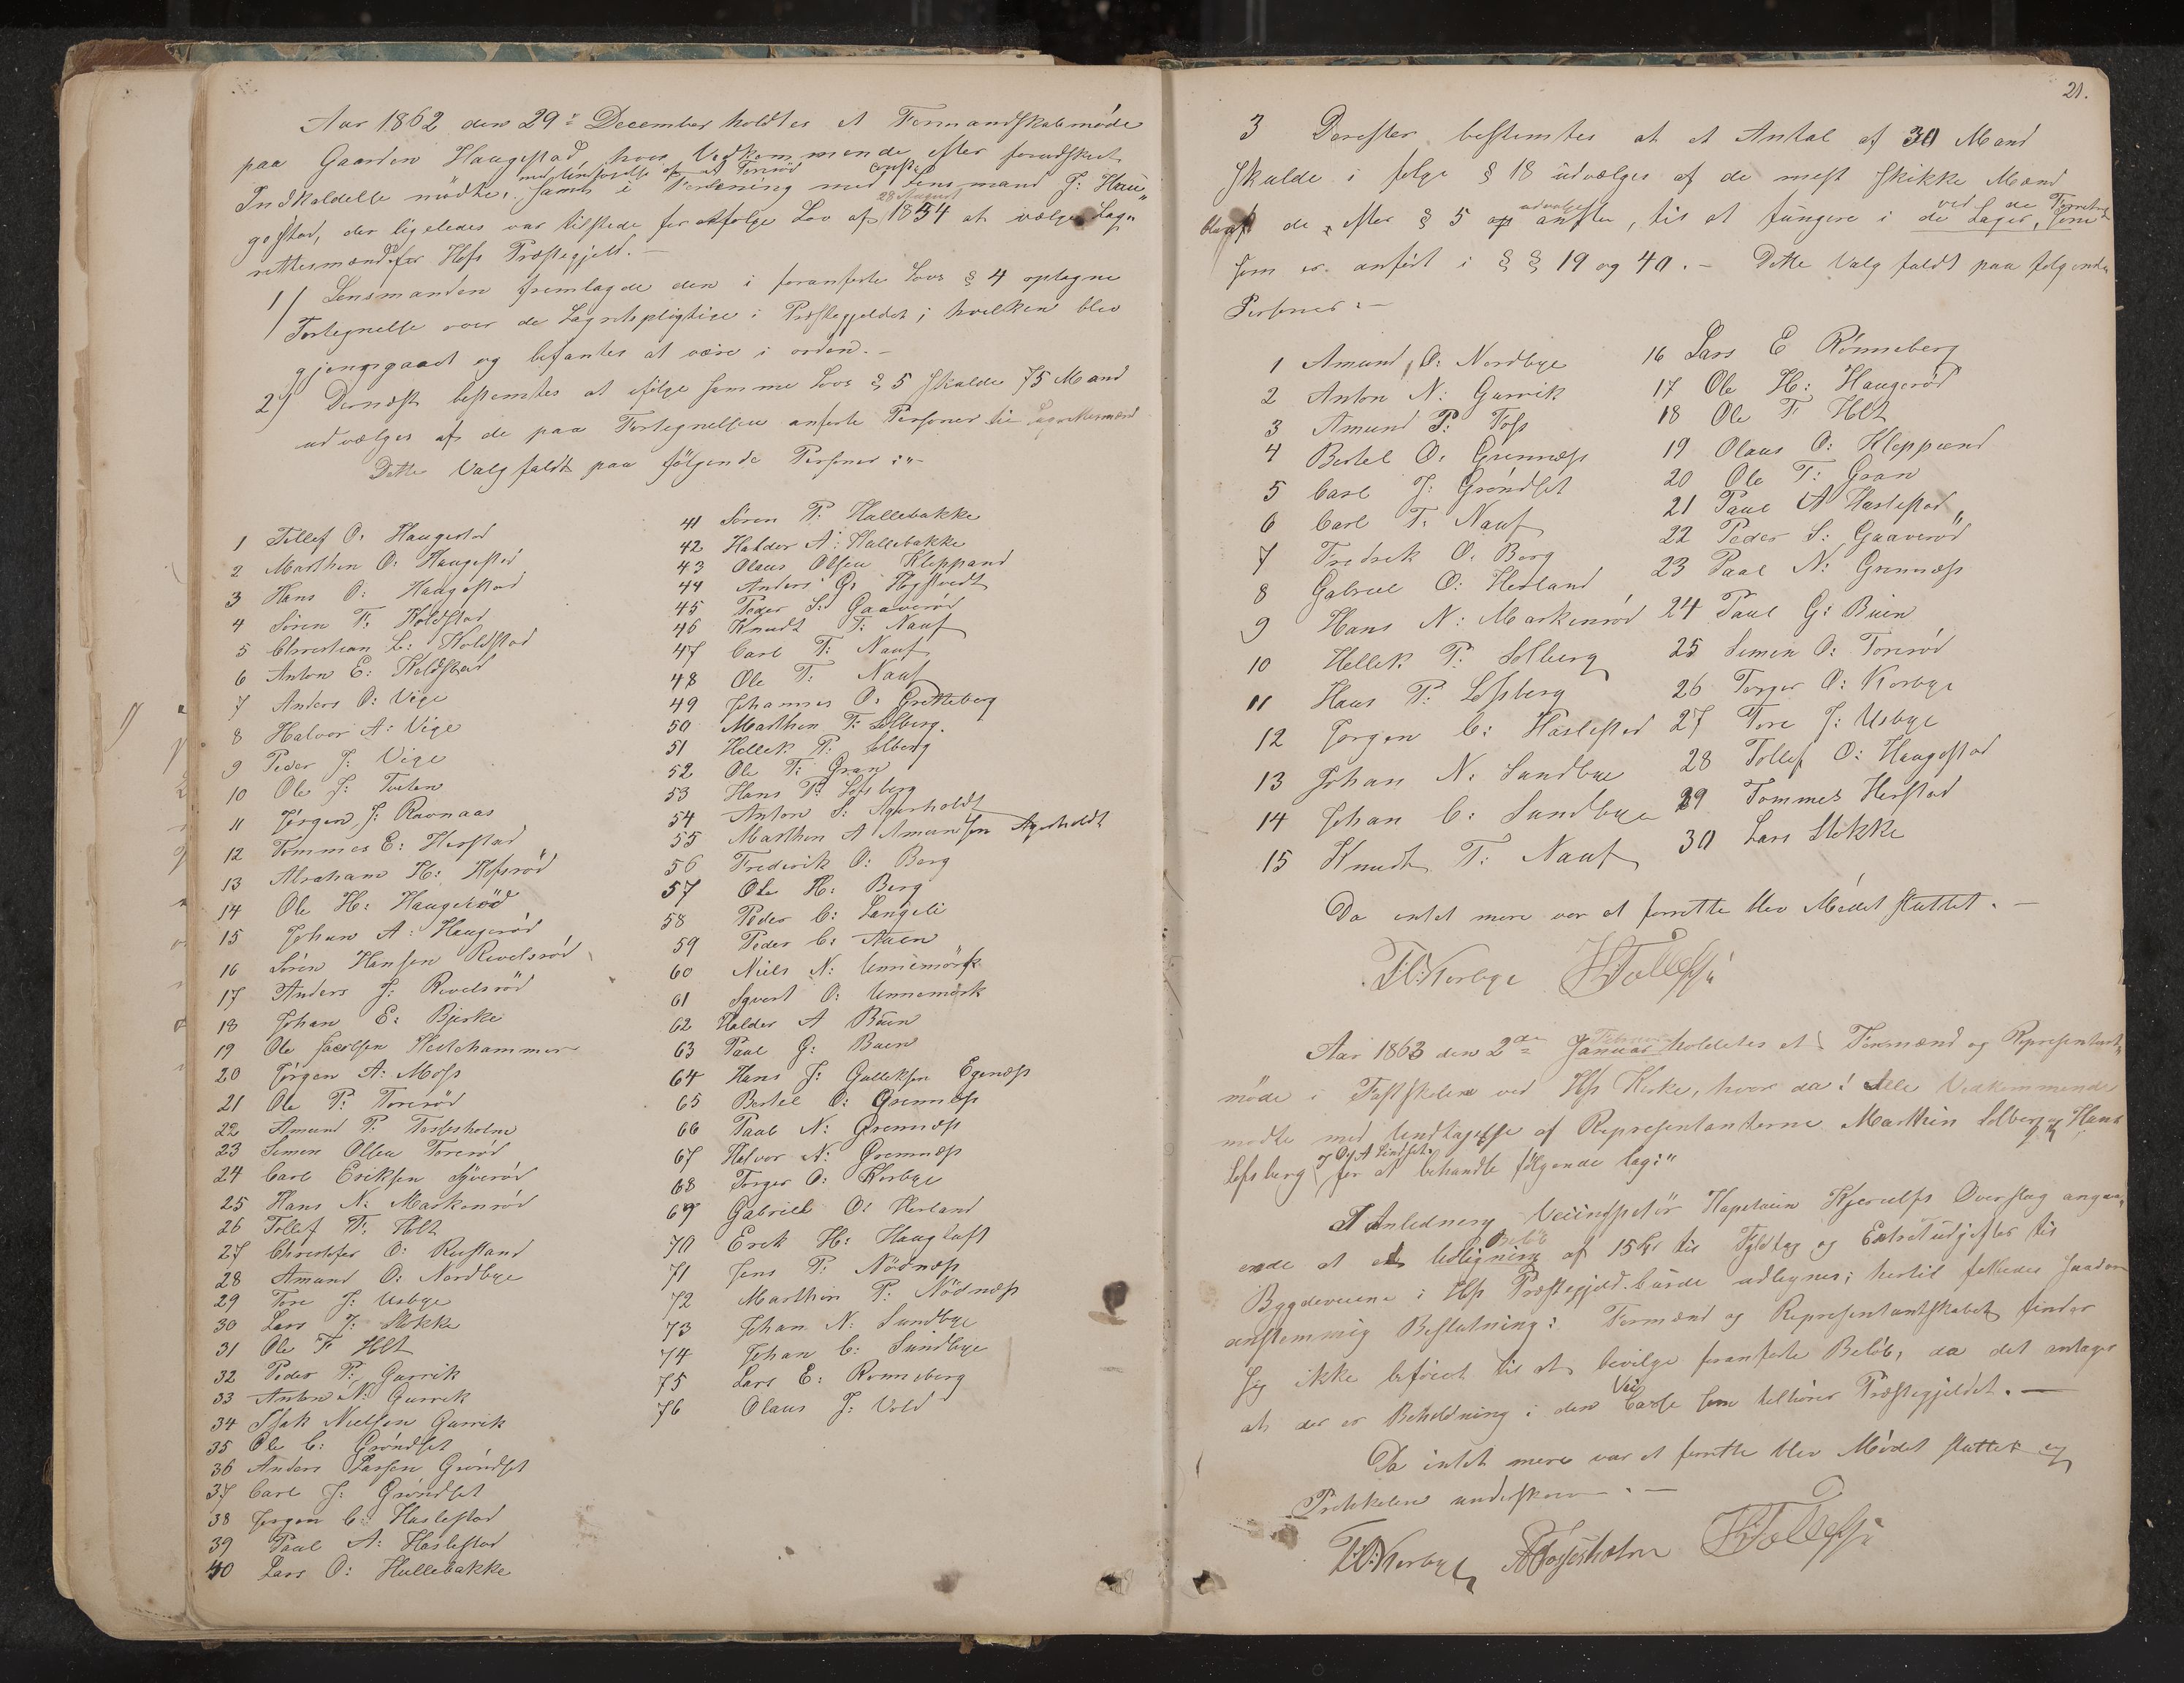 Aar 1862 den 29de December holdtes et Formandskabsmöde
paa Gaarden Haugestad, hvor Vedkommende efter forudskeet
Indkaldelse mödte, med Undtagelse af Toreröd samt i Forening med const: Lensmand J: Hau„
gestad, der ligeledes var tilstede for ifølge Lov af 28 August 1854 at vælge Lag„
rettesmænd for Hofs Præstegjeld.—
1/ Lensmanden fremlagde den i foranførte Lovs § 4 optagne
Fortegnelse over de Lagretspligtige i Præstegjeldet; hvilken blev
gjennegaaet og befantes at være i orden.—
2/ Dernæst bestemtes at ifölge samme Lovs § 5 skulde 75 Mand
udvælges af de paa Fortegnelsen anførte Personer til Lagrettesmænd
Dette Valg faldt paa fölgende Personer:„
1 Tollef O. Haugestad
2 Marthin O. Haugestad
3 Hans O: Haugestad
4 Sören T: Holdstad
5 Christian L: Holdstad
6 Anton E: Holdstad
7 Anders O: Vige
8 Halvor A: Vige
9 Peder J: Vige
10 Ole J: Tveten
11 Jörgen J: Ravnaas
12 Tommes E: Herstad
13 Abraham H: Hofsröd
14 Ole H: Haugeröd
15 Johan A: Haugeröd
16 Sören Hansen Revelsröd
17 Anders J: Revelsröd
18 Johan E: Bjerke
19 Ole Jacobsen
20 Jörgen A: Moss
21 Ole P: Toreröd
22 Amund P: Fossesholm
23 Simen Olsen Toreröd
24 Carl Eriksen
25 Hans N: Markenröd
26 Tollef T: Holt
27 Christofer O: Rustand
28 Amund O: Nordbye
29 Tore J: Usbye
30 Lars J: Stokke
31 Ole T: Holt
32 Peder P: Garrik
33 Anton N: Garrik
34 Isak Nielsen Garrik
35 Ole C: Gröndset
36 Anders Larsen Gröndset
37 Carl J: Gröndset
38 Jörgen C: Haslestad
39 Paul A: Haslestad
40 Lars O: Hullebakke
41 Sören P: Hallebakke
42 Haldor A: Hallebakke
43 Olaus Olsen Kleppand
44 Anders G:
45 Peder S: Gaaveröd
46 Knudt T: Nauf
47 Carl T: Nauf
48 Ole T: Nauf
49 Johannes O: Gretteberg
50 Marthin T: Solberg.
51 Hellek P: Solberg
52 Ole T: Gran
53 Hans P: Lofsberg
54 Anton S: Agerholdt
55 Marthin A Amundsen Agerholdt
56 Frederik O: Berg
57 Ole H: Berg
58 Peder C: Langeli
59 Peder C:
60 Niels N: Unnemörk
61 Syvert O: Unnemörk
62 Haldor A Buen
63 Paul G: Buen
64 Hans J: Gulleksen Egenæss
65 Bertel O: Grennæss
66 Paul N: Grennæss
67 Halvor N: Grennæss
68 Torger O: Korbye
69 Gabriel O: Herland
70 Erik H: Haugtuft
71 Jens P: Nödnæss
72 Marthin P: Nödnæss
73 Johan N: Sundbye
74 Johan C: Sundbye
75 Lars E: Rönneberg
76 Olaus J: Vold
21.
3 Derefter bestemtes at et Antal af 30 Mand
skulde i følge § 18 udvælges af de mest skikke Mænd
blant de efter § 5 udvalgte, til at fungere i de Sager,
som er anfört i §§ 19 og 40.— Dette Valg faldt paa følgende
Personer:—
1 Amund O: Nordbye
2 Anton N: Garrik
3 Amund P: Foss
4 Bertel O: Grennæss
5 Carl J: Gröndset
6 Carl T: Nauf
7 Fredrik O: Berg
8 Gabriel O: Herland
9 Hans N: Markenröd
10 Hellek P: Solberg
11 Hans P: Lofsberg
12 Jörgen C: Haslestad
13 Johan N: Sundbye
14 Johan C: Sundbye
15 Knudt T: Nauf
16 Lars E Rönneberg
17 Ole H: Haugeröd
18 Ole T Holt
19 Olaus O: Kleppand
20 Ole T: Gran
21 Paul A Haslestad
22 Peder S: Gaaveröd
23 Paal N: Grennæss
24 Paul G: Buen
25 Simen O: Toreröd
26 Torger O: Korbye
27 Tore J: Usbye
28 Tollef O: Haugestad
29 Tommes Herstad
30 Lars Stokke
Da intet mere var at forrette blev Mödet sluttet.—
T.O:Korbye H Tollefs
Aar 1863 den 2den Januar Februar holdetes et Formænd og Representant„
möde i Fastskolen ved Hofs Kirke, hvor da! Alle Vedkommende
mødte med Undtagelse af Representanterne Marthin Solberg og Hans
Lofsberg for at behandle følgende Sag:„
I Anledning Veiinspetör Kapetain Kjerulfs Overslag angaa„
ende at et Belöb af 15 til Fyldtag og Extra udgifter til
Bygdeveiene i Hofs Præstegjeld burde udlegnes; hertil fattedes saadan
enstemmig Beslutning: Formænd og Representantskabet finder
sig ikke beföiet til at bevilge foranførte Belöb, da det antages
at der er Beholdning i den Vei Casse som tilhörer Præstegjeldet.—
Da intet mere var at forrette blev Mödet sluttet og
Protokolen underskreven.—
T.O:Korbye A Fossesholm H Tollefs